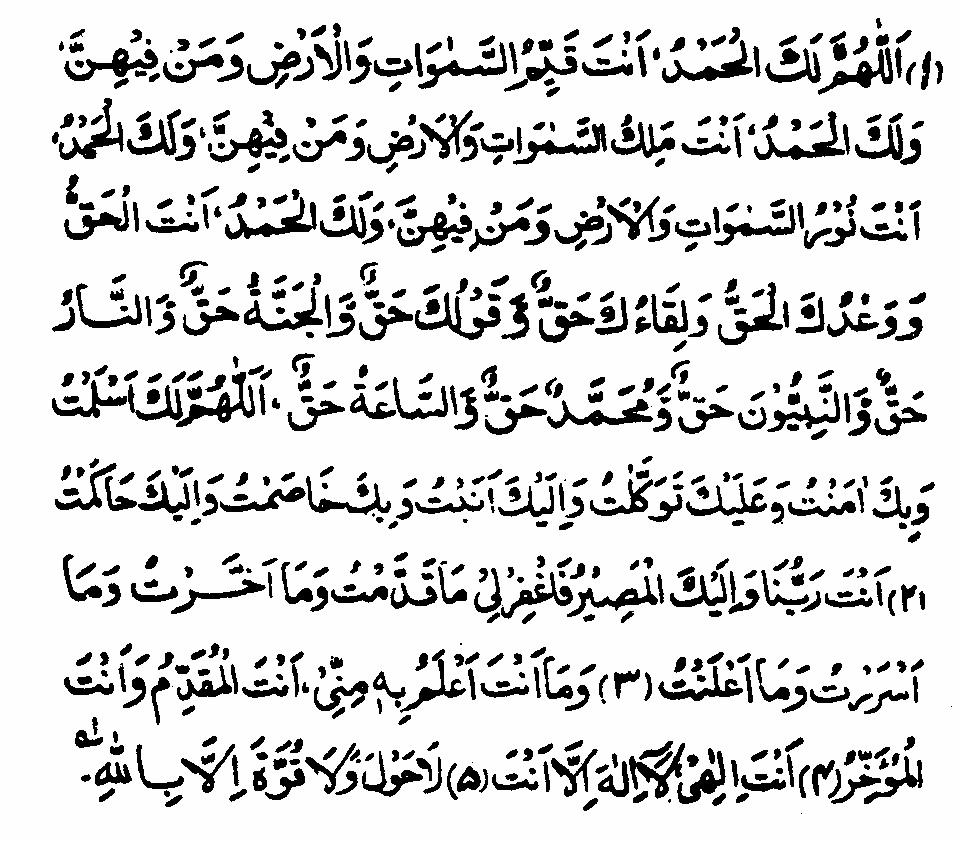 (۱) اَللّٰهُمَّ لَكَ الْحَمْدُ، اَنْتَ قَيِّمُ السَّمٰوَاتِ وَالْاَرْضِ وَمَنْ فِيْهِنَّ،
وَلَكَ الْحَمْدُ، اَنْتَ مَلِكُ السَّمٰوَاتِ وَالْاَرْضِ وَمَنْ فِيْهِنَّ، وَلَكَ الْحَمْدُ،
اَنْتَ نُوْرُ السَّمٰوَاتِ وَالْاَرْضِ وَمَنْ فِيْهِنَّ، وَلَكَ الْحَمْدُ، اَنْتَ الْحَقُّ
وَوَعْدُكَ الْحَقُّ وَلِقَاءُكَ حَقٌّ وَّقَوْلُكَ حَقٌّ وَّالْجَنَّةُ حَقٌّ وَّالنَّارُ
حَقٌّ وَّالنَّبِيُّوْنَ حَقٌّ وَّمُحَمَّدٌ حَقٌّ وَّالسَّاعَةُ حَقٌّ، اَللّٰهُمَّ لَكَ اَسْلَمْتُ
وَبِكَ اٰمَنْتُ وَعَلَيْكَ تَوَكَّلْتُ وَاِلَيْكَ اَنَبْتُ وَبِكَ خَاصَمْتُ وَاِلَيْكَ حَاكَمْتُ
(۲) اَنْتَ رَبُّنَا وَاِلَيْكَ الْمَصِيْرُ فَاغْفِرْ لِيْ مَا قَدَّمْتُ وَمَا اَخَّرْتُ وَمَا
اَسْرَرْتُ وَمَا اَعْلَنْتُ (۳) وَمَا اَنْتَ اَعْلَمُ بِهٖ مِنِّيْ، اَنْتَ الْمُقَدِّمُ وَاَنْتَ
الْمُؤَخِّرُ (۴) اَنْتَ اِلٰهِيْ لَآ اِلٰهَ اِلَّا اَنْتَ (۵) لَا حَوْلَ وَلَا قُوَّةَ اِلَّا بِاللّٰهِ۔